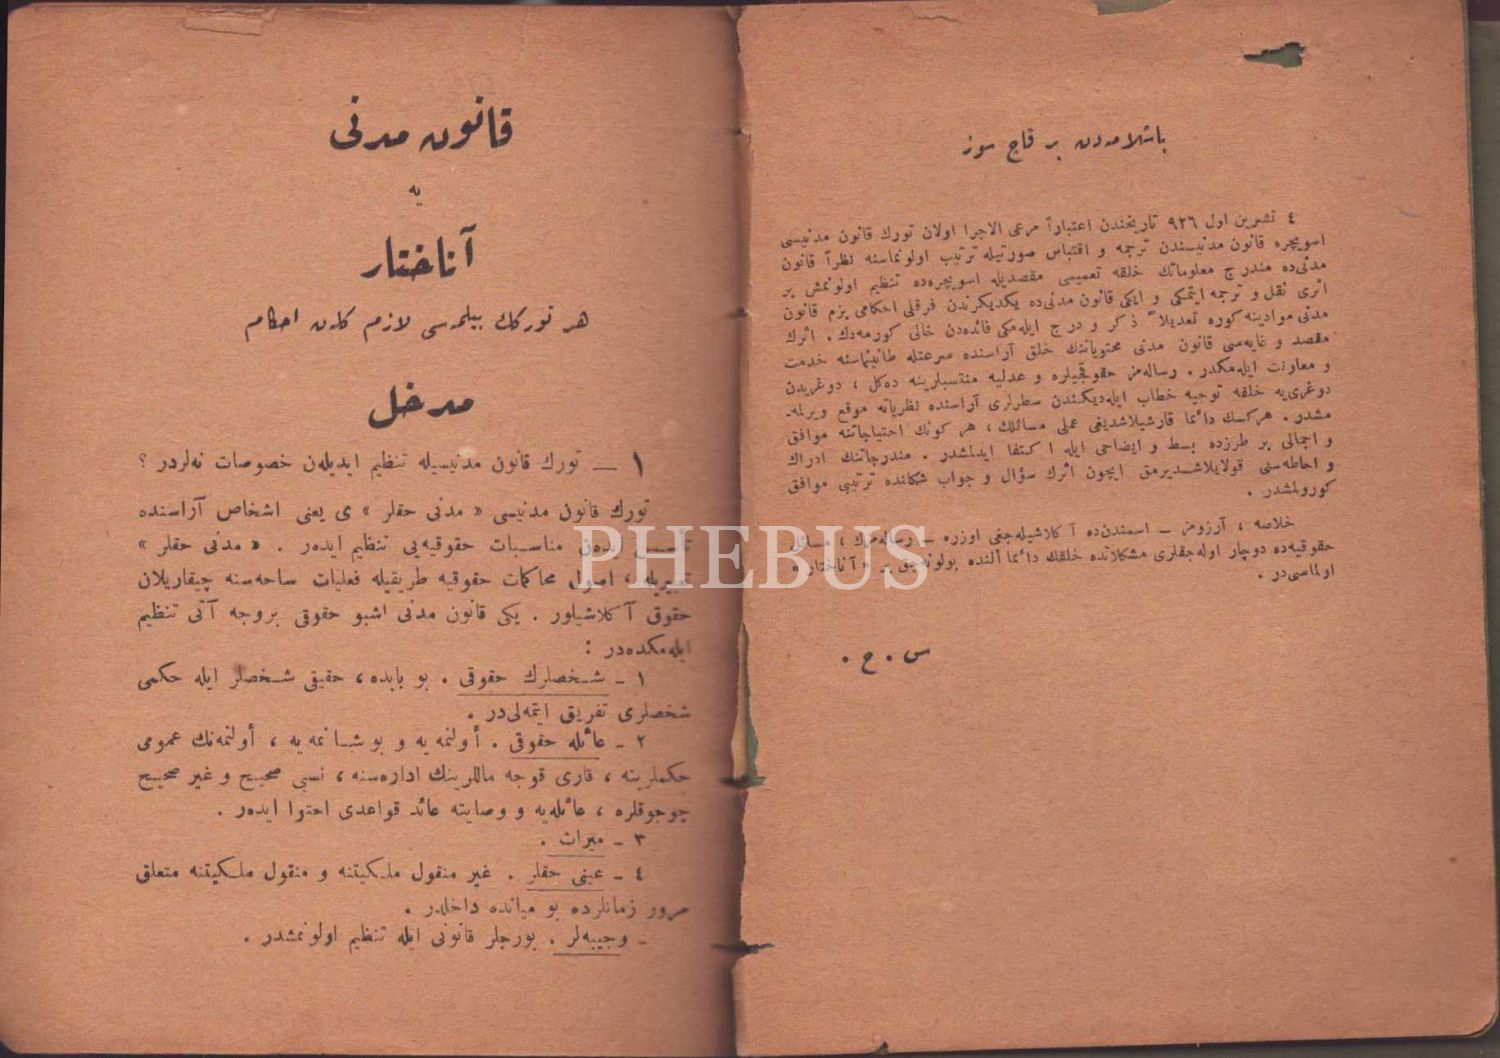 باشلامه‌دن بر قاچ سوز
٤ تشرین اول ٩٢٦ تاریخندن اعتباراً مرعی الاجرا اولان تورك قانون مدنیسی
اسویچره قانون مدنیسندن ترجمه و اقتباس صورتیله ترتیب اولونماسنه نظراً قانون
مدنی‌ده مندرج معلوماتك خلقه تعمیمی مقصدیله اسویچره‌ده تنظیم اولونمش بر
اثری نقل و ترجمه ایتمكی و ایكی قانون مدنی‌ده یكدیكرندن فرقلی احكامی بزم قانون
مدنی موادینه كوره تعدیلاً ذكر و درج ایله‌مكی فائده‌دن خالی كورمه‌دك . اثرك
مقصد و غایه‌سی قانون مدنی محتویاتنك خلق آراسنده سرعتله طانینماسنه خدمت
و معاونت ایله‌مكدر . رساله‌مز حقوقجیلره و عدلیه منتسبلرینه ده‌كل ، دوغریدن
دوغری‌یه خلقه توجیه خطاب ایله‌دیكندن سطرلری آراسنده نظریاته موقع ویرلمه‌-
مشدر . هركسك دائما قارشیلاشدیغی عملی مسائلك ، هر كونك احتیاجاتنه موافق
و اجمالی بر طرزده بسط و ایضاحی ایله اكتفا ایدلمشدر . مندرجاتنك ادراك
و احاطه‌سنی قولایلاشدیرمق ایچون اثرك سؤال و جواب شكلنده ترتیبی موافق
كورولمشدر .
خلاصه ، آرزومز – اسمندن‌ده آكلاشیله‌جغی اوزره – رساله‌مزك ، مسائل
حقوقیه‌ده دوچار اوله‌جقلری مشكلاتده خلقك دائما النده بولونه‌جق بر « آناختار »
اولماسی‌در .
س . ح .
قانون مدنی
یه
آناختار
هر توركك بیلمه‌سی لازم كلن احكام
مدخل
١ — تورك قانون مدنیسیله تنظیم ایدیلن خصوصات نه‌لردر ؟
تورك قانون مدنیسی « مدنی حقلر » ی یعنی اشخاص آراسنده
ایدن مناسبات حقوقیه‌یی تنظیم ایدر . « مدنی حقلر »
تعبیریله ، اصول محاكمات حقوقیه طریقیله فعلیات ساحه‌سنه چیقاریلان
حقوق آكلاشیلور . یكی قانون مدنی اشبو حقوقی بروجه آتی تنظیم
ایله‌مكده‌در :
١ – شخصلرك حقوقی . بو بابده ، حقیقی شخصلر ایله حكمی
شخصلری تفریق ایتمه‌لی‌در .
٢ – عائله حقوقی . أولنمه یه و بوشانمه یه ، أولنمه‌نك عمومی
حكملرینه ، قاری قوجه ماللرینك اداره‌سنه ، نسبی صحیح و غیر صحیح
چوجوقلره ، عائله‌یه و وصایته عائد قواعدی احتوا ایدر .
٣ – میراث .
٤ – عینی حقلر . غیر منقول ملكیتنه و منقول ملكیتنه متعلق
مرور زمانلرده بو میانده داخلدر .
– وجیبه‌لر . بورجلر قانونی ایله تنظیم اولونمشدر .
PHEBUS